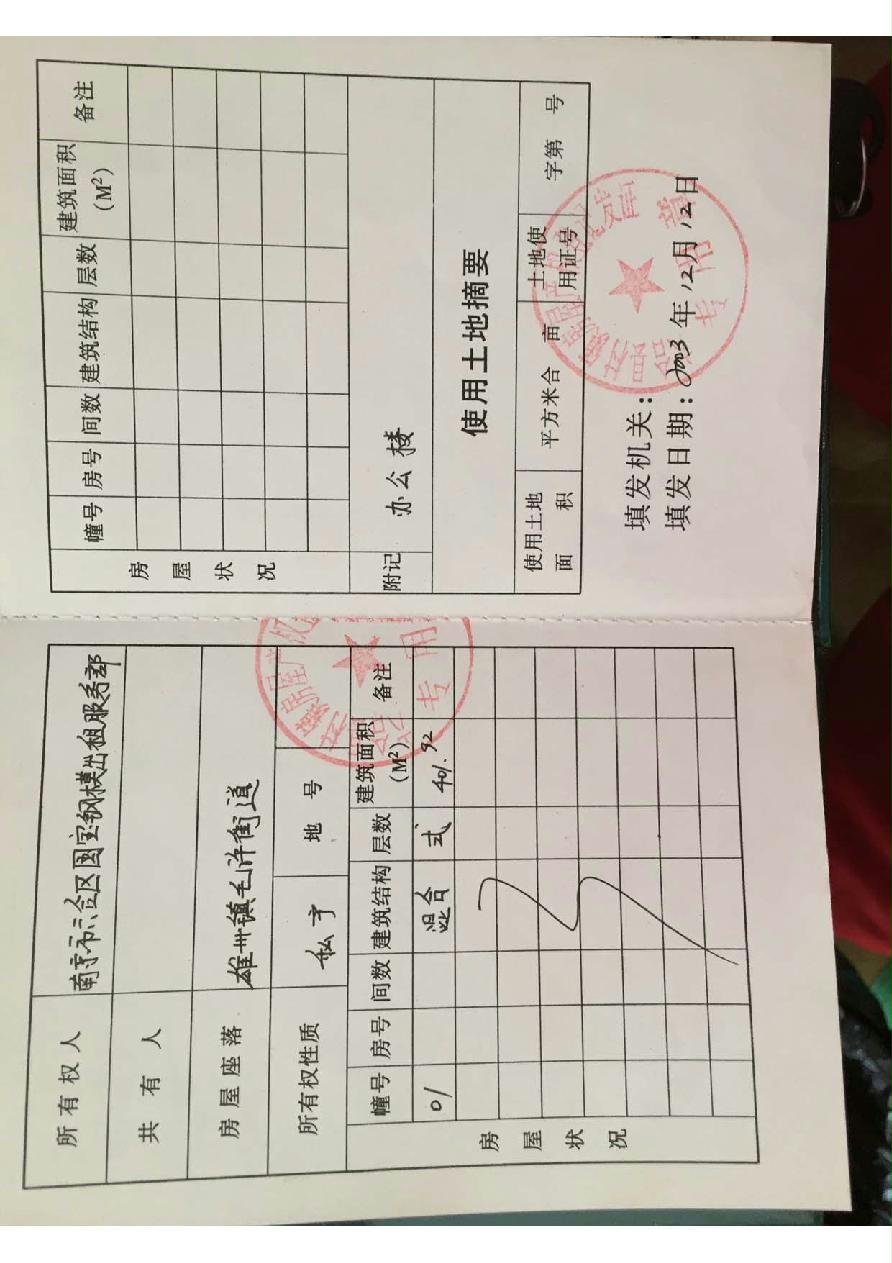 所有权人 南京市六合区国宝钢模出租服务部
共有人
房屋座落 雄州镇毛许街道
所有权性质 私产 地号
房屋状况 幢号 房号 间数 建筑结构 层数 建筑面积(M²) 备注
01 混合 弍 401.92
房屋状况 幢号 房号 间数 建筑结构 层数 建筑面积(M²) 备注
附记 办公楼
使用土地摘要
使用土地面积 平方米合 亩 土地使用证号 字第 号
填发机关:
填发日期:2003年12月12日
专用章
专用